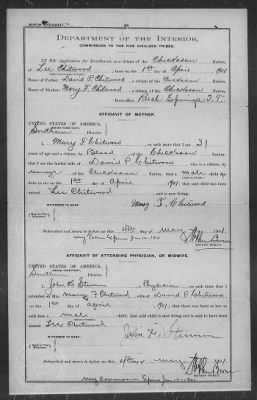 DEPARTMENT OF THE INTERIOR,
COMMISSION TO THE FIVE CIVILIZED TRIBES.
IN RE Application for Enrollment, as a citizen of the Chickasaw Nation, of
Lee Chitwood, born on the 1st day of April 1901
Name of Father: David P. Chitwood a citizen of the Chickasaw Nation.
Name of Mother: Mary F. Chitwood a citizen of the Chickasaw Nation.
Postoffice, Rush Springs I.T.
AFFIDAVIT OF MOTHER.
UNITED STATES OF AMERICA,
INDIAN TERRITORY,
Southern District.
I, Mary F. Chitwood, on oath state that I am 31
years of age and a citizen, by Blood, of the Chickasaw Nation;
that I am the lawful wife of David P. Chitwood, who is a citizen, by
of the Chickasaw Nation; that a male child
was born to me on the 1st day of April 1901, that said child has been
named Lee Chitwood, and is now living.
Mary F. Chitwood
Subscribed and sworn to before me this day of May 1901.
AFFIDAVIT OF ATTENDING PHYSICIAN, OR MIDWIFE.
UNITED STATES OF AMERICA,
INDIAN TERRITORY,
Southern District.
I, John H. a Physician, on oath state that I
attended on Mary F. Chitwood, wife of David P. Chitwood
on the 1st day of April, 1901; that there was born to her on said date a
male child; that said child is now living and is said to have been
named Lee Chitwood.
John H.
Subscribed and sworn to before me this day of May 1901.
My Commission Expires Jan